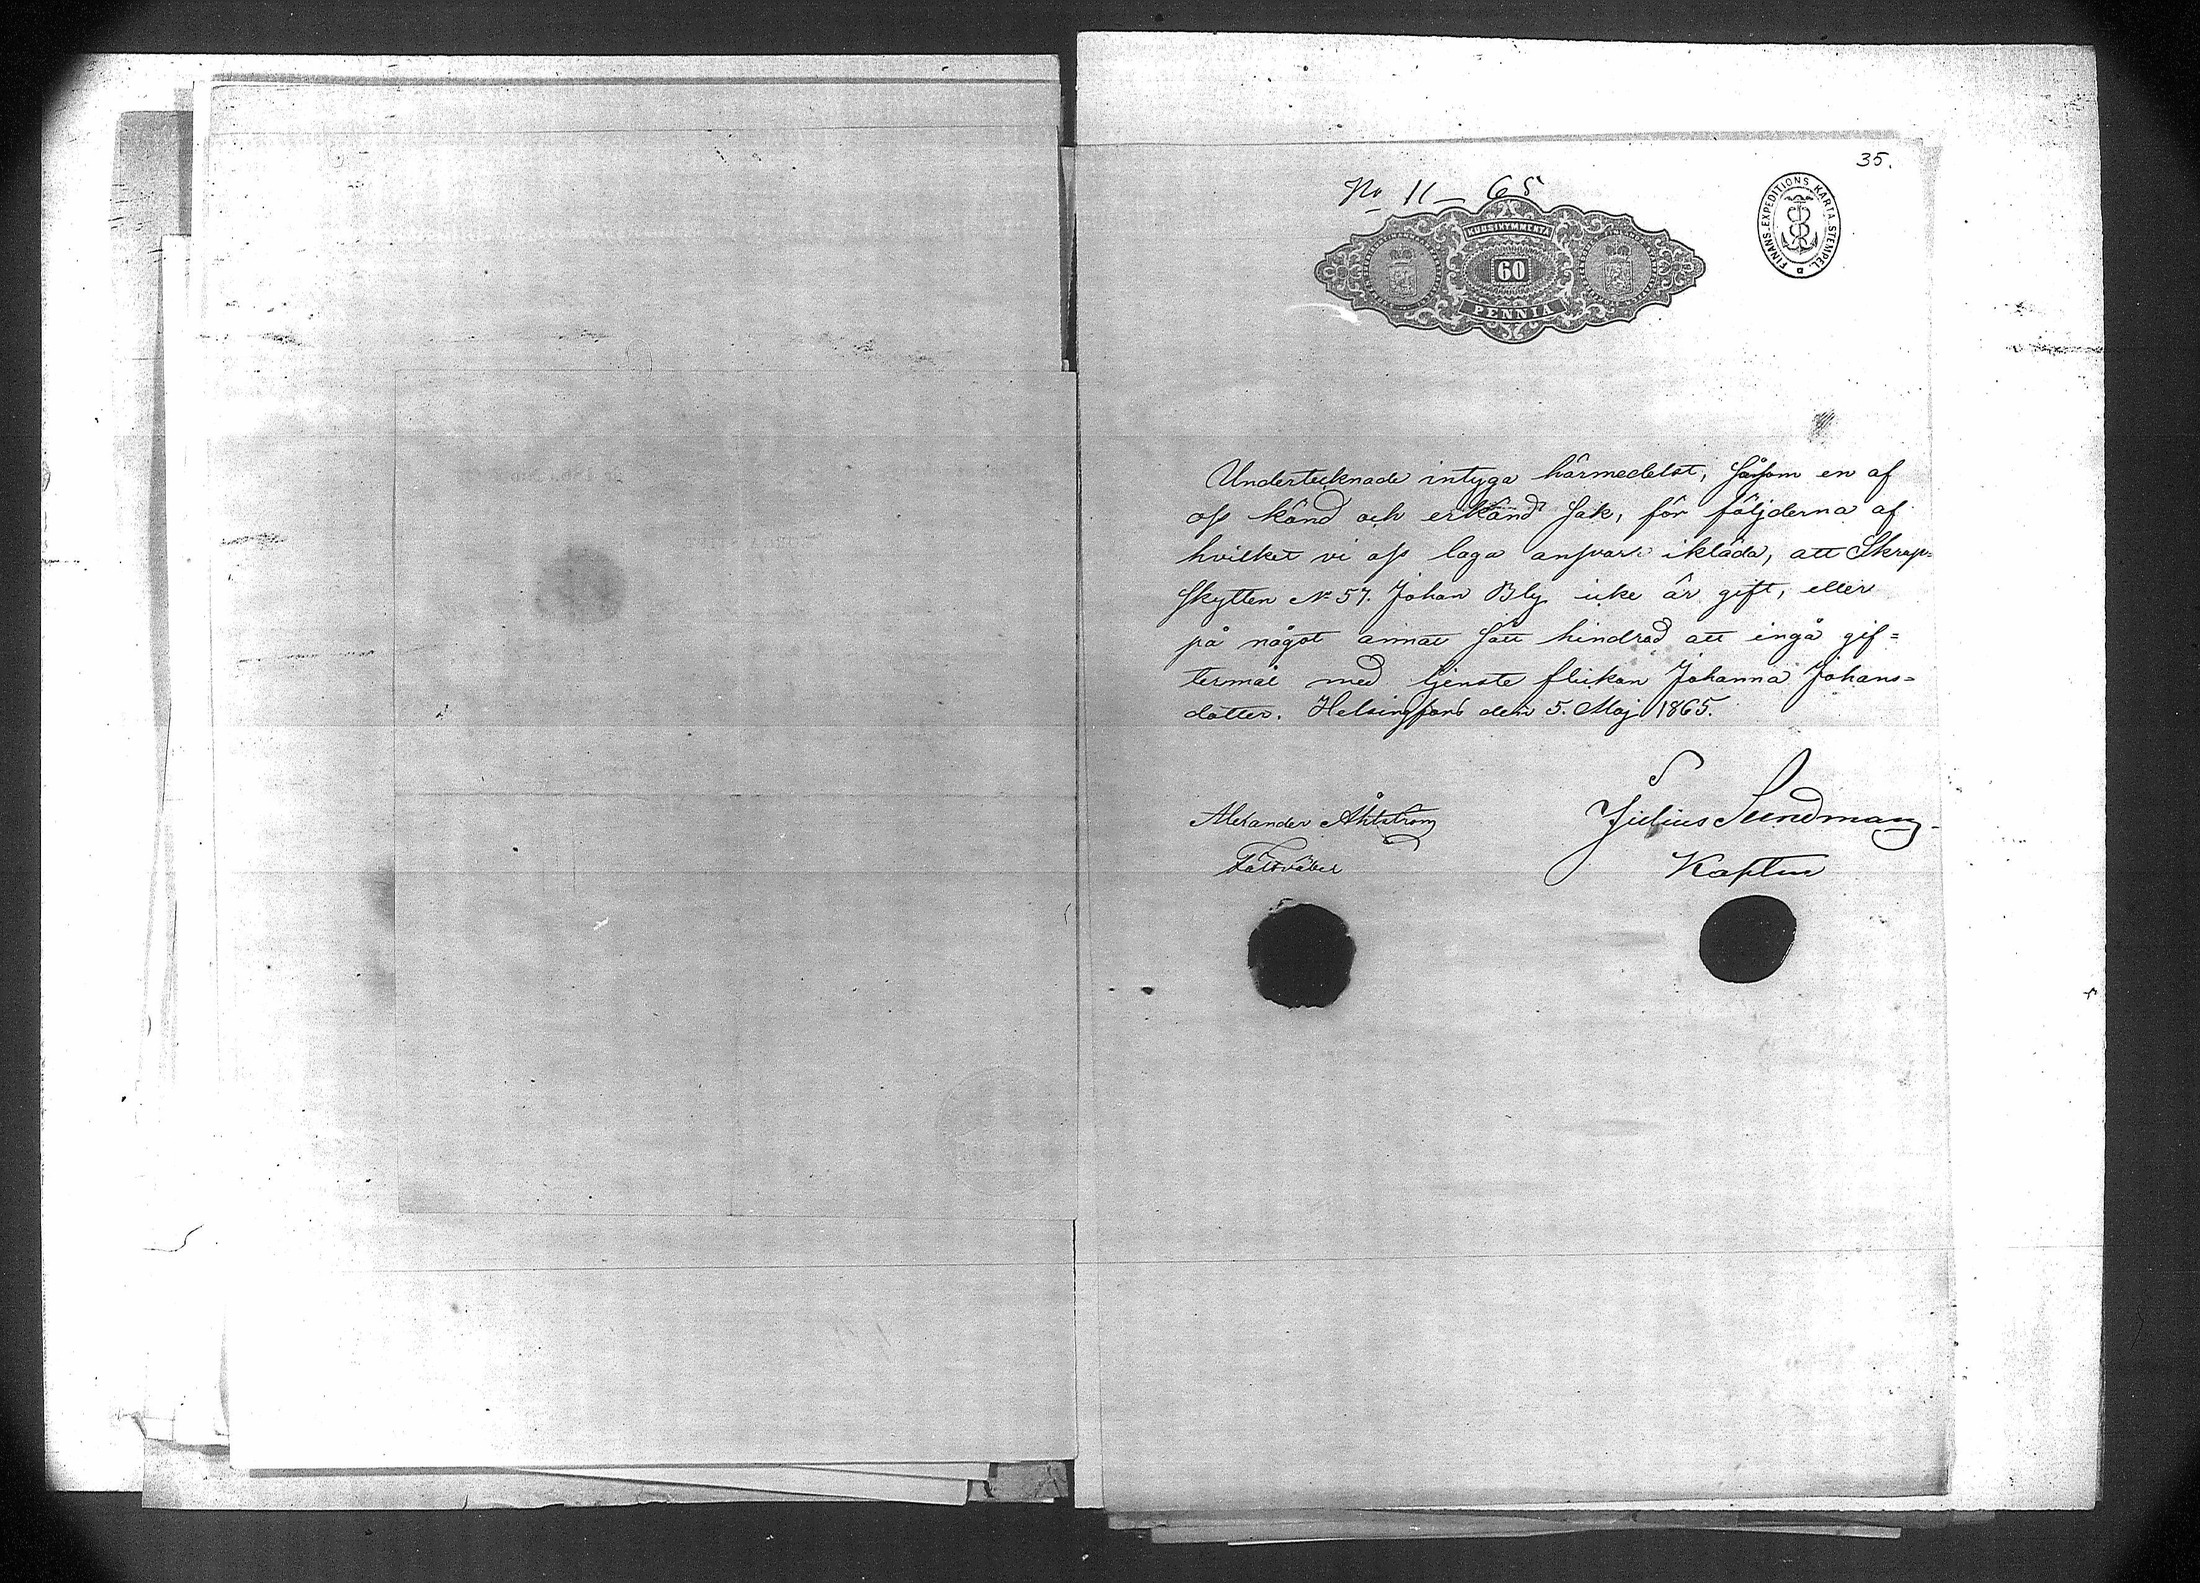 35.
No 11 – 65
FINANS-EXPEDITIONS KARTA STEMPEL.
KUUSIKYMMENTÄ
60
PENNIÄ
Undertecknade intyga härmedelst, såsom en af
oss känd och erkänd sak, för följderna af
hvilket vi oss laga ansvar ikläda, att Skarp=
skytten No 57. Johan Bly icke är gift, eller
på något annat sätt hindrad att ingå gif=
termål med tjenste flickan Johanna Johans=
dotter. Helsingfors den 5. Maj 1865.
Alexander Åhlström
Julius Sundman
Fältväbel
Kapten